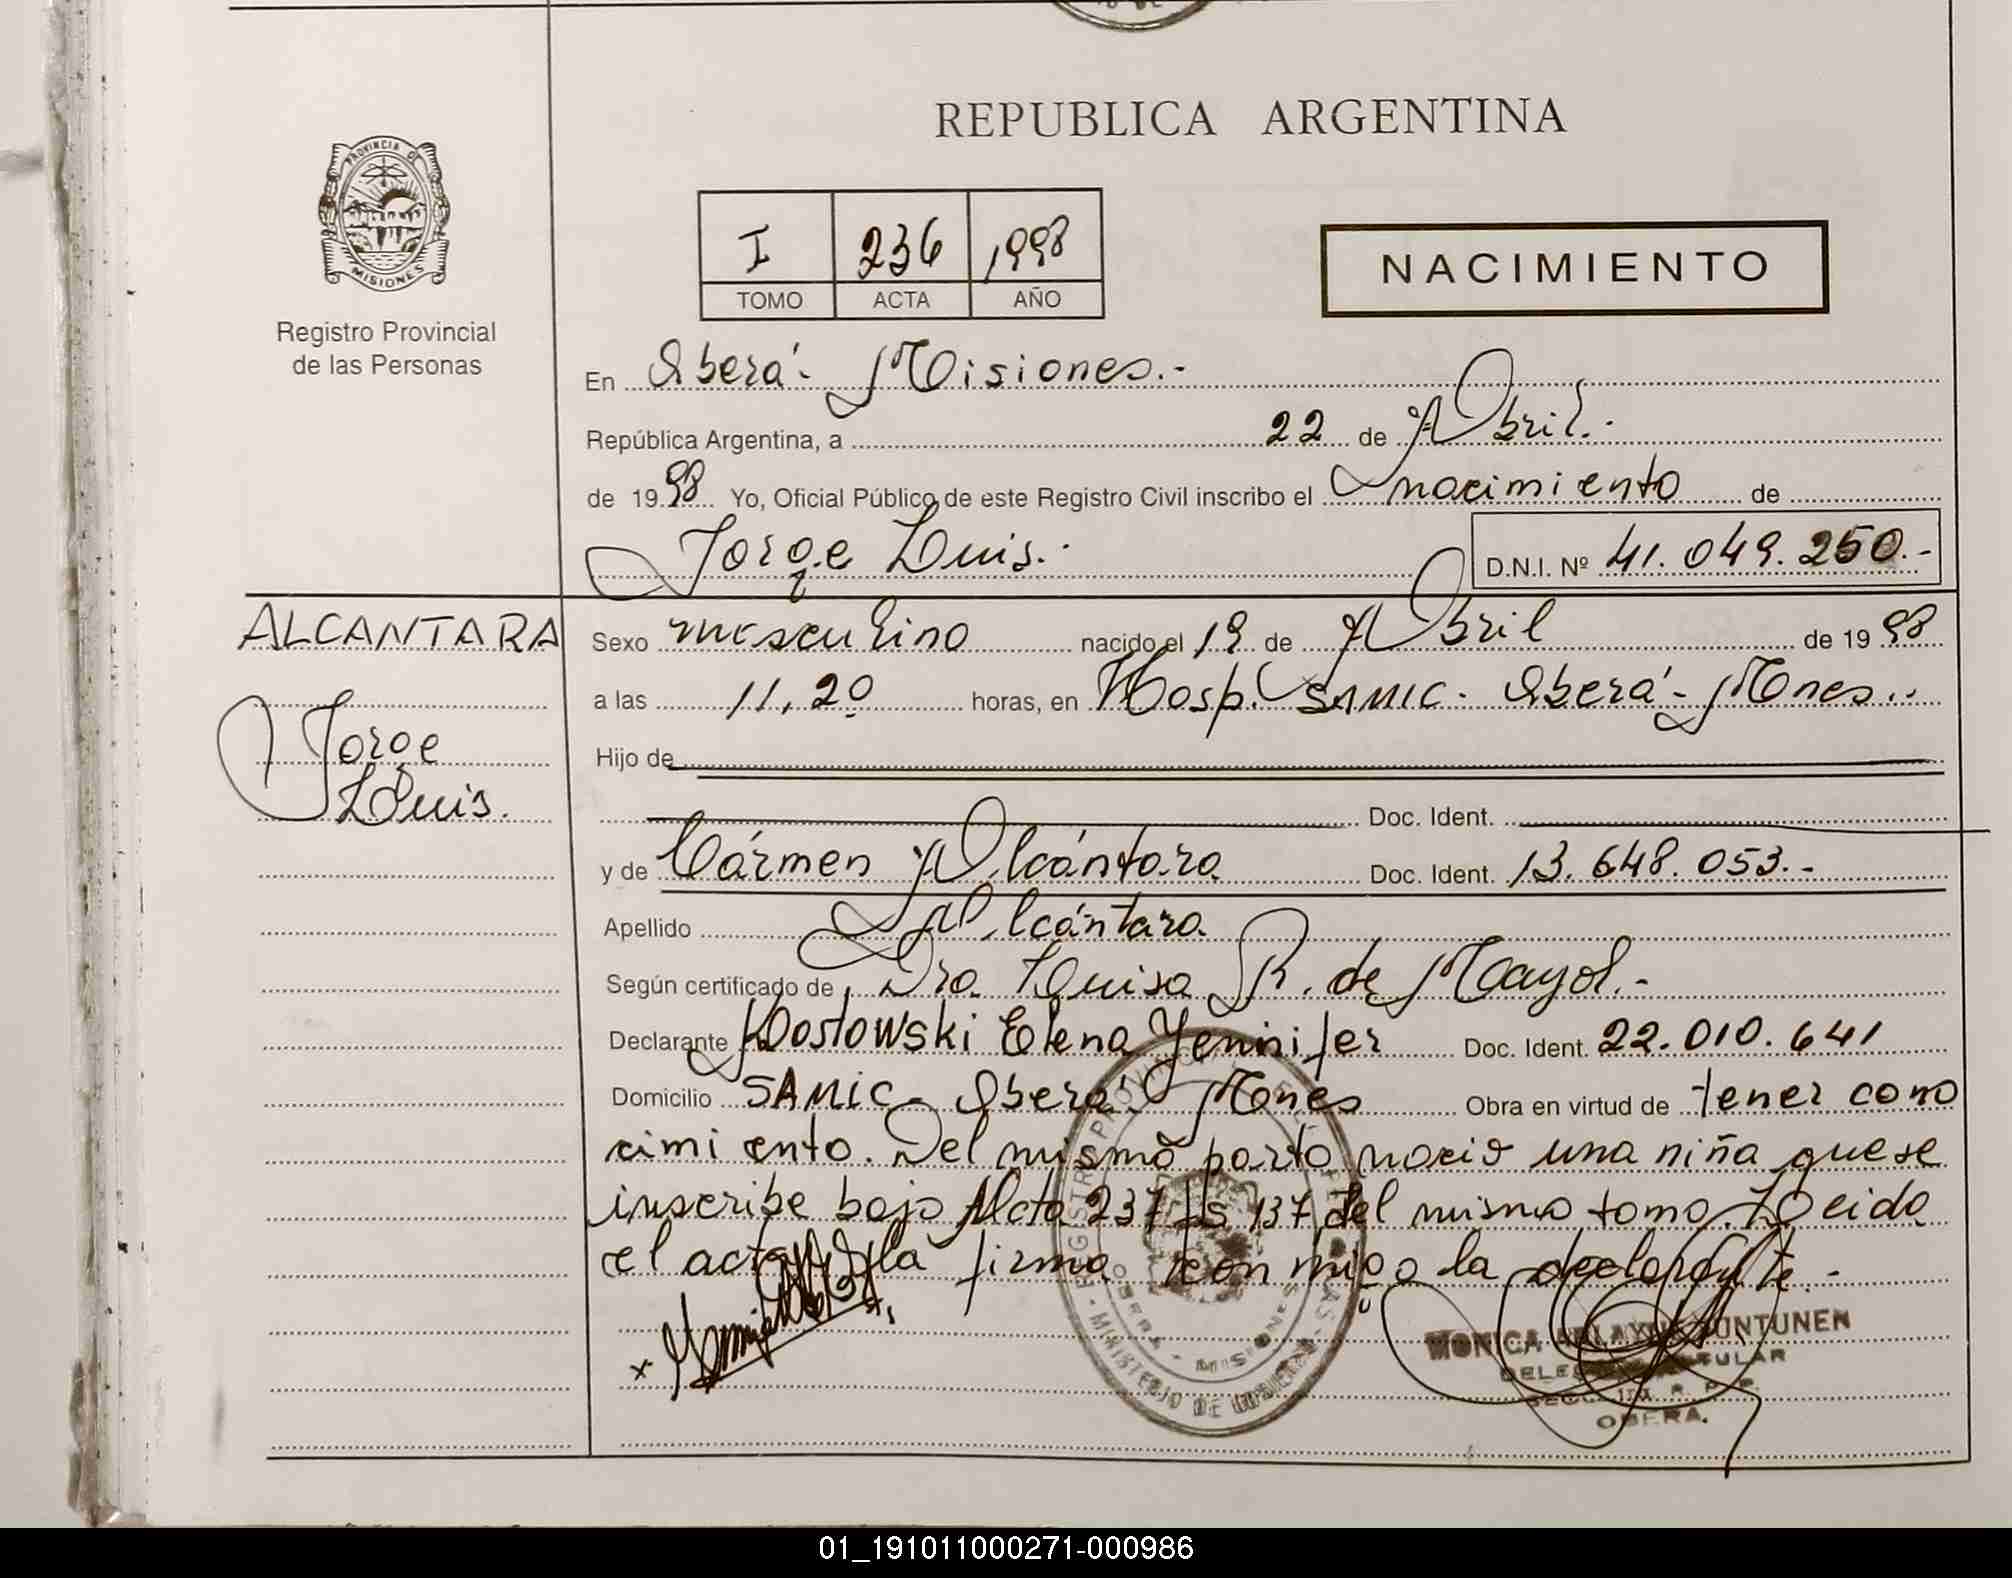 REPUBLICA ARGENTINA
PROVINCIA DE
MISIONES
Registro Provincial
de las Personas
I 236 1998
TOMO ACTA AÑO
NACIMIENTO
En Oberá - Misiones.-
República Argentina, a 22 de Abril.-
de 1998 Yo, Oficial Público de este Registro Civil inscribo el nacimiento de
Jorge Luis.- D.N.I. Nº 41.049.250.-
ALCANTARA
Jorge
Luis.
Sexo masculino nacido el 19 de Abril de 1998
a las 11,20 horas, en Hosp. SAMIC - Oberá - Mnes.-
Hijo de
Doc. Ident.
y de Cármen Alcántara Doc. Ident. 13.648.053.-
Apellido Alcántara
Según certificado de Dra Luisa R. de Mayol.-
Declarante Kostowski Elena Yennifer Doc. Ident. 22.010.641
Domicilio SAMIC - Oberá - Mnes Obra en virtud de tener cono
cimiento. Del mismo parto nació una niña que se
inscribe bajo Acta 237 fs 137 del mismo tomo. Leida
el acta, la firma conmigo la declarante.-
REGISTRO PROVINCIAL DE LAS PERSONAS - MINISTERIO DE GOBIERNO
OBERA - MISIONES
MONICA UNTUNEN
TITULAR
OBERA.
01_191011000271-000986